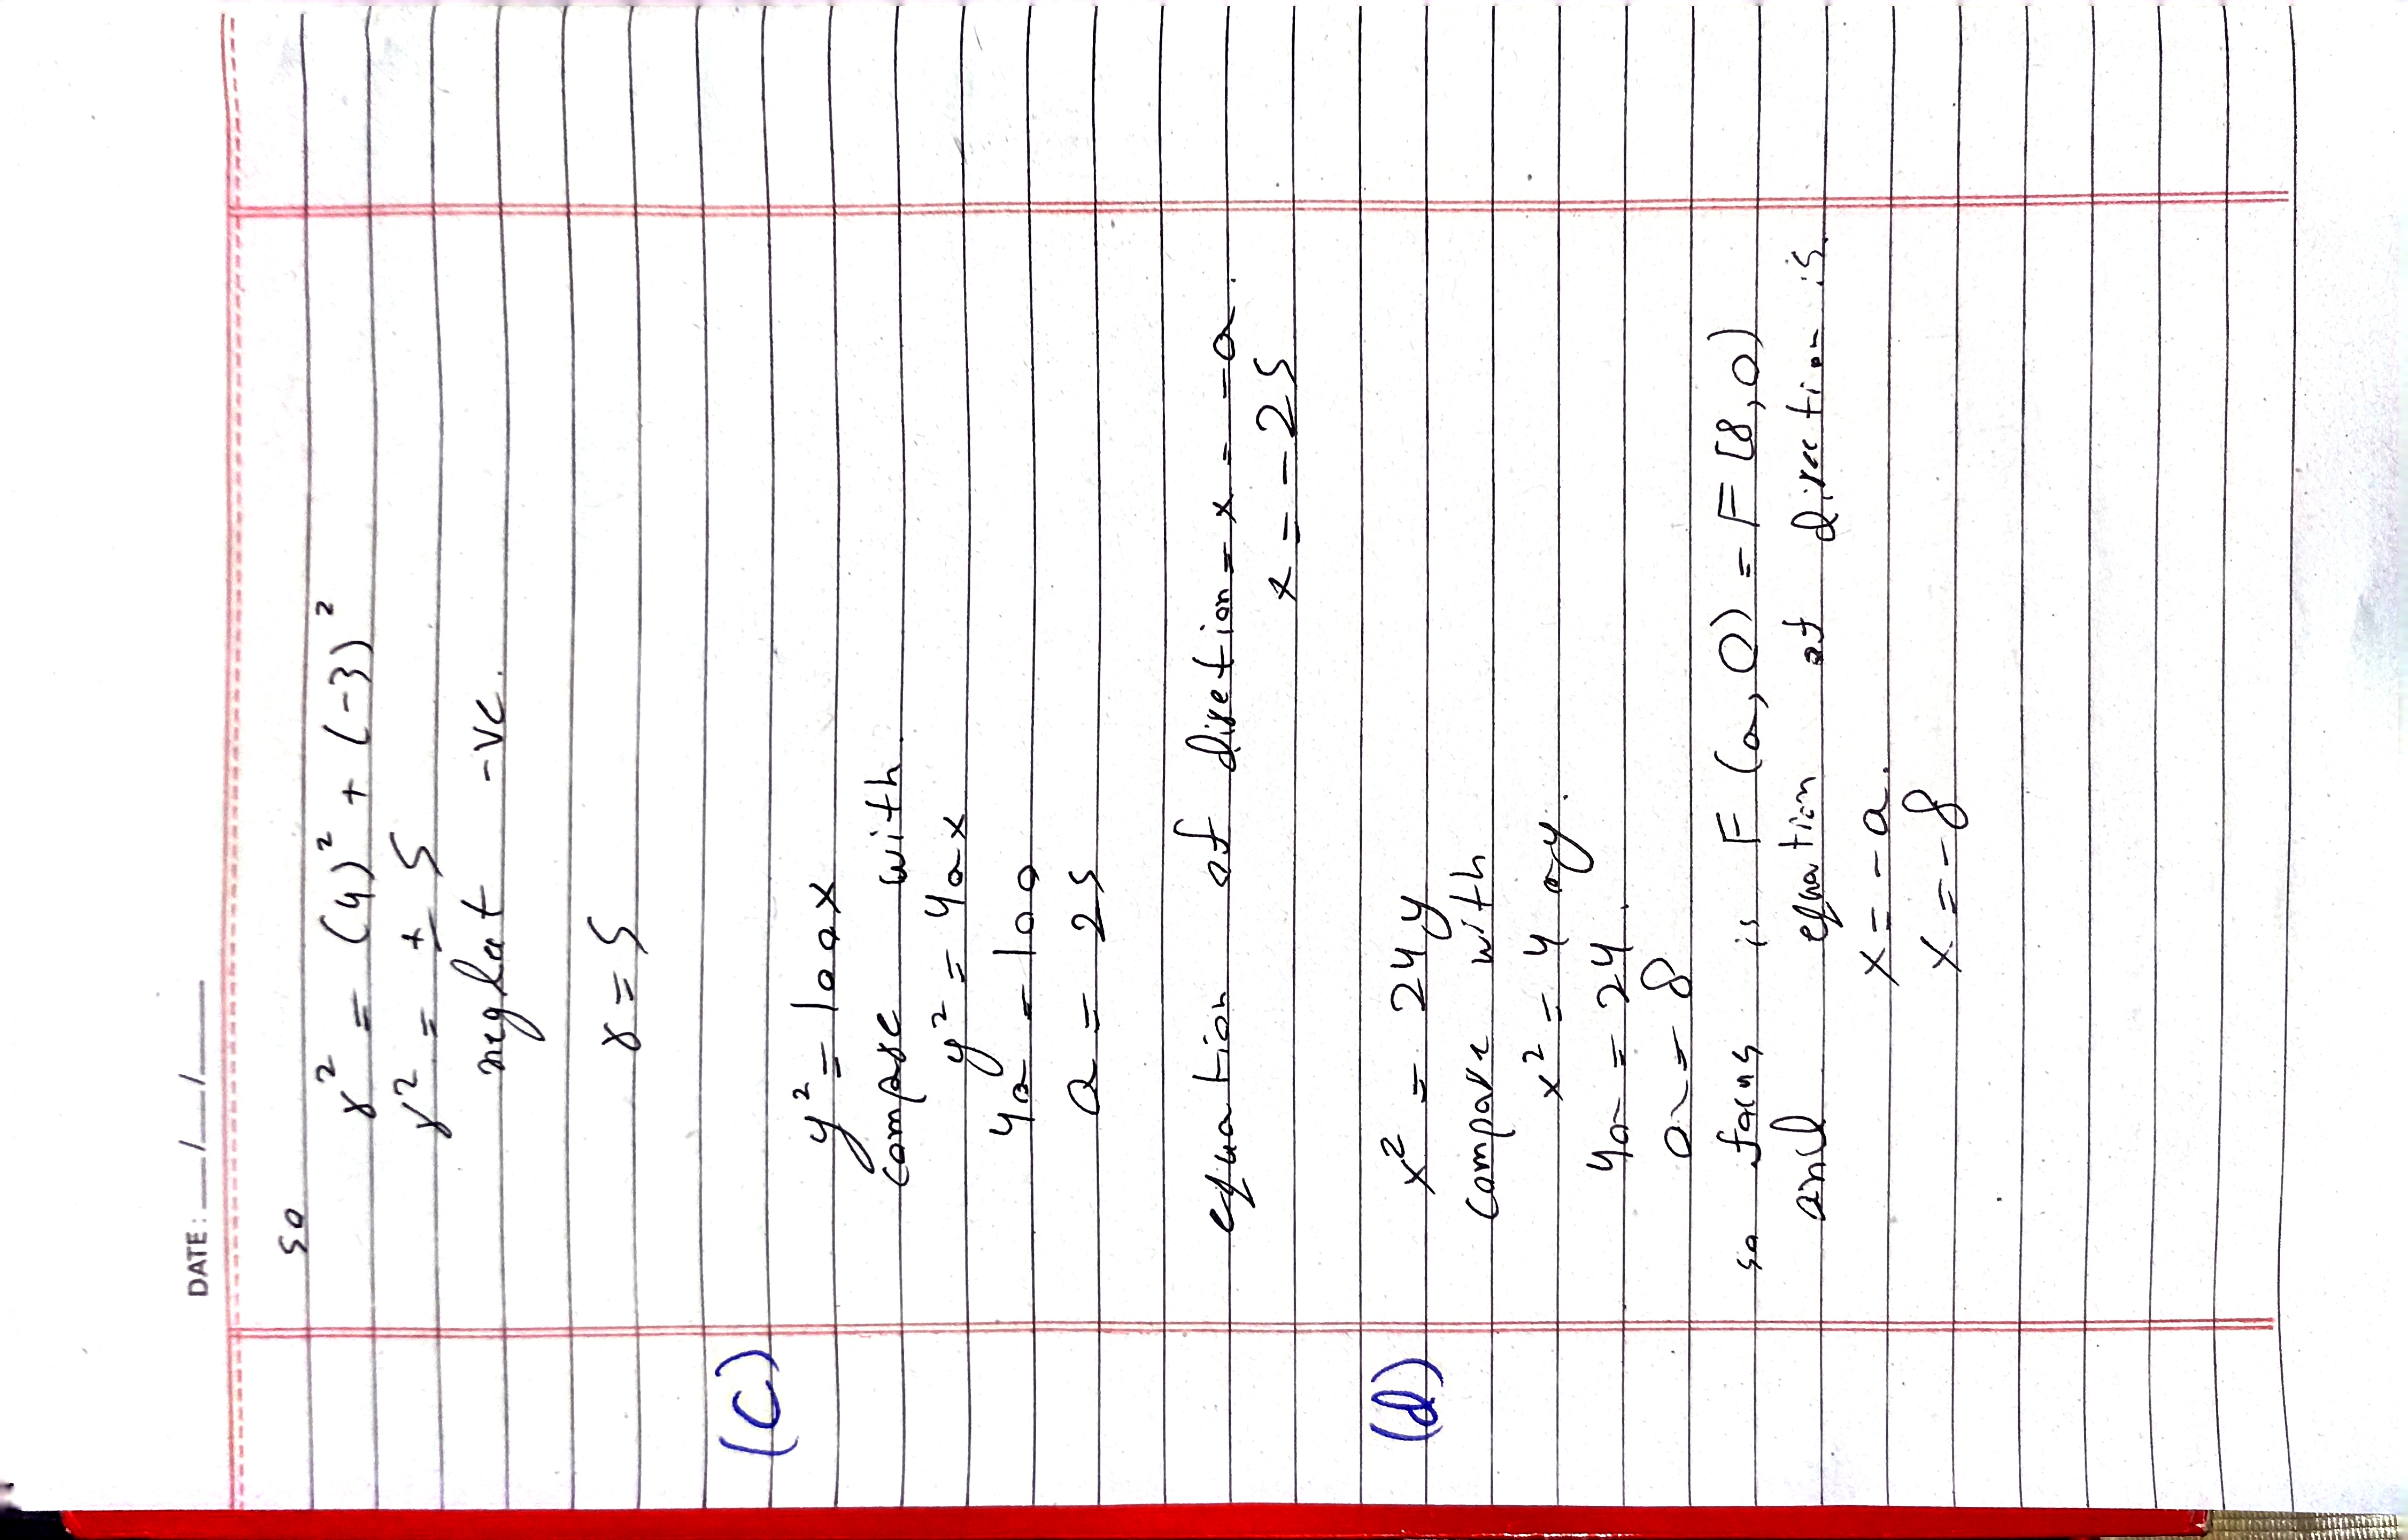 DATE: __/__/__
so
r² = (4)² + (-3)²
r² = ± 5
neglect -ve.
r = 5
(c)
y² = 100x
compare with
y² = 4ax
4a = 100
a = 25
equation of diretion = x = -a.
x = -25
(d)
x² = 24y
compare with
x² = 4 ay.
4a = 24.
a = 8
so focus is F (a, 0) = F (8, 0)
and equation of direction is.
x = -a.
x = -8